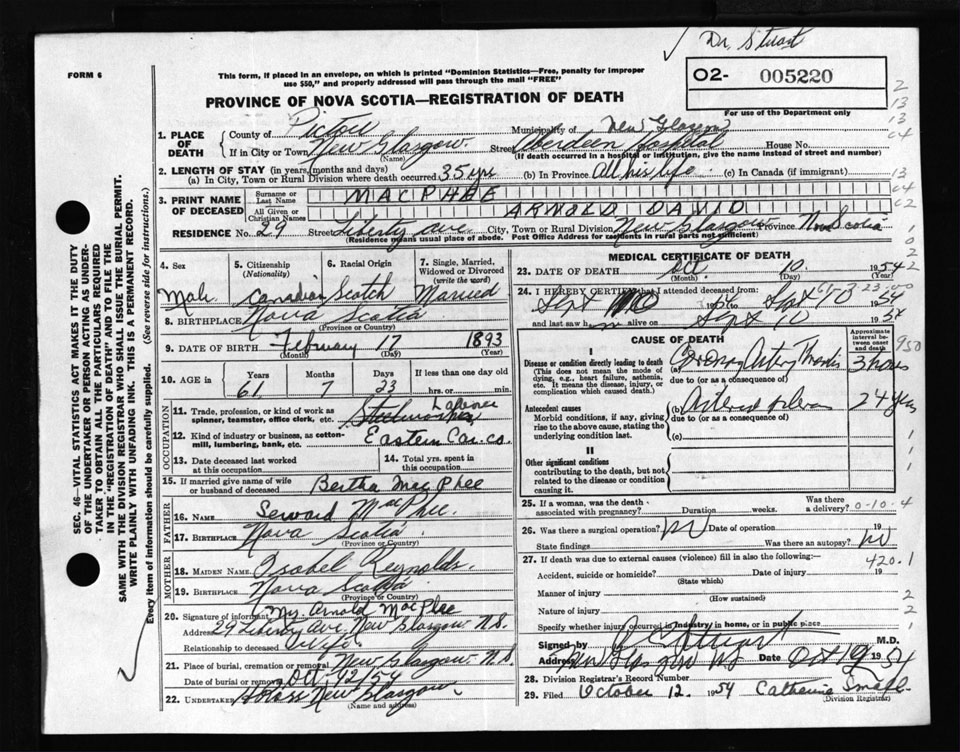 Dr. Stuart
FORM 6
This form, if placed in an envelope, on which is printed "Dominion Statistics—Free, penalty for improper
use $50," and properly addressed will pass through the mail "FREE"
O2- 005220
For use of the Department only
PROVINCE OF NOVA SCOTIA—REGISTRATION OF DEATH
1. PLACE OF DEATH
County of Pictou Municipality of New Glasgow
If in City or Town New Glasgow (Name) Street Aberdeen Hospital House No.
(If death occurred in a hospital or institution, give the name instead of street and number)
2. LENGTH OF STAY (in years, months and days)
(a) In City, Town or Rural Division where death occurred 35 yrs (b) In Province All his life (c) In Canada (if immigrant)
3. PRINT NAME OF DECEASED
Surname or Last Name MACPHEE
All Given or Christian Names ARNOLD DAVID
RESIDENCE No. 29 Street Liberty Ave. City, Town or Rural Division New Glasgow Province Nova Scotia
(Residence means usual place of abode. Post Office Address for residents in rural parts not sufficient)
4. Sex Male
5. Citizenship (Nationality) Canadian
6. Racial Origin Scotch
7. Single, Married, Widowed or Divorced (write the word) Married
8. BIRTHPLACE Nova Scotia
(Province or Country)
9. DATE OF BIRTH February 17 1893
(Month) (Day) (Year)
10. AGE in Years Months Days If less than one day
61 7 23 hrs. or min.
OCCUPATION
11. Trade, profession, or kind of work as spinner, teamster, office clerk, etc. Laborer
12. Kind of industry or business, as cotton-mill, lumbering, bank, etc. Eastern Car Co.
13. Date deceased last worked at this occupation
14. Total yrs. spent in this occupation
15. If married give name of wife or husband of deceased Bertha MacPhee
FATHER
16. NAME Seward MacPhee
17. BIRTHPLACE Nova Scotia
(Province or Country)
MOTHER
18. MAIDEN NAME Isabel Reynolds
19. BIRTHPLACE Nova Scotia
(Province or Country)
20. Signature of informant Mrs. Arnold MacPhee
Address 29 Liberty Ave. New Glasgow N.S.
Relationship to deceased wife
21. Place of burial, cremation or removal New Glasgow N.S.
Date of burial or removal Oct 12/54
22. UNDERTAKER New Glasgow
(Name and address)
MEDICAL CERTIFICATE OF DEATH
23. DATE OF DEATH Oct. 10 1954
(Month) (Day) (Year)
24. I HEREBY CERTIFY that I attended deceased from:
Sept 1954 to Sept 1954
and last saw him alive on Sept 10 1954
CAUSE OF DEATH
Approximate interval between onset and death
I
Disease or condition directly leading to death
(This does not mean the mode of dying, e.g., heart failure, asthenia, etc. It means the disease, injury, or complication which caused death.)
(a) Coronary Artery Thrombosis 3 hours
due to (or as a consequence of)
Antecedent causes
Morbid conditions, if any, giving rise to the above cause, stating the underlying condition last.
(b)
due to (or as a consequence of)
(c)
II
Other significant conditions
contributing to the death, but not related to the disease or condition causing it.
25. If a woman, was the death associated with pregnancy? Duration weeks. Was there a delivery?
26. Was there a surgical operation? no Date of operation 19
State findings Was there an autopsy? no
27. If death was due to external causes (violence) fill in also the following:—
Accident, suicide or homicide? Date of injury 19
(State which)
420.1
Manner of injury
(How sustained)
Nature of injury
Specify whether injury occurred in industry, in home, or in public place
Signed by Stuart M.D.
Address New Glasgow NS Date Oct 1954
28. Division Registrar's Record Number
29. Filed October 12. 1954 Catherine
(Division Registrar)
SEC. 46—VITAL STATISTICS ACT MAKES IT THE DUTY
OF THE UNDERTAKER OR PERSON ACTING AS UNDER-
TAKER TO OBTAIN ALL THE PARTICULARS REQUIRED
IN THE "REGISTRATION OF DEATH" AND TO FILE THE
SAME WITH THE DIVISION REGISTRAR WHO SHALL ISSUE THE BURIAL PERMIT.
WRITE PLAINLY WITH UNFADING INK. THIS IS A PERMANENT RECORD.
Every item of information should be carefully supplied. (See reverse side for instructions.)